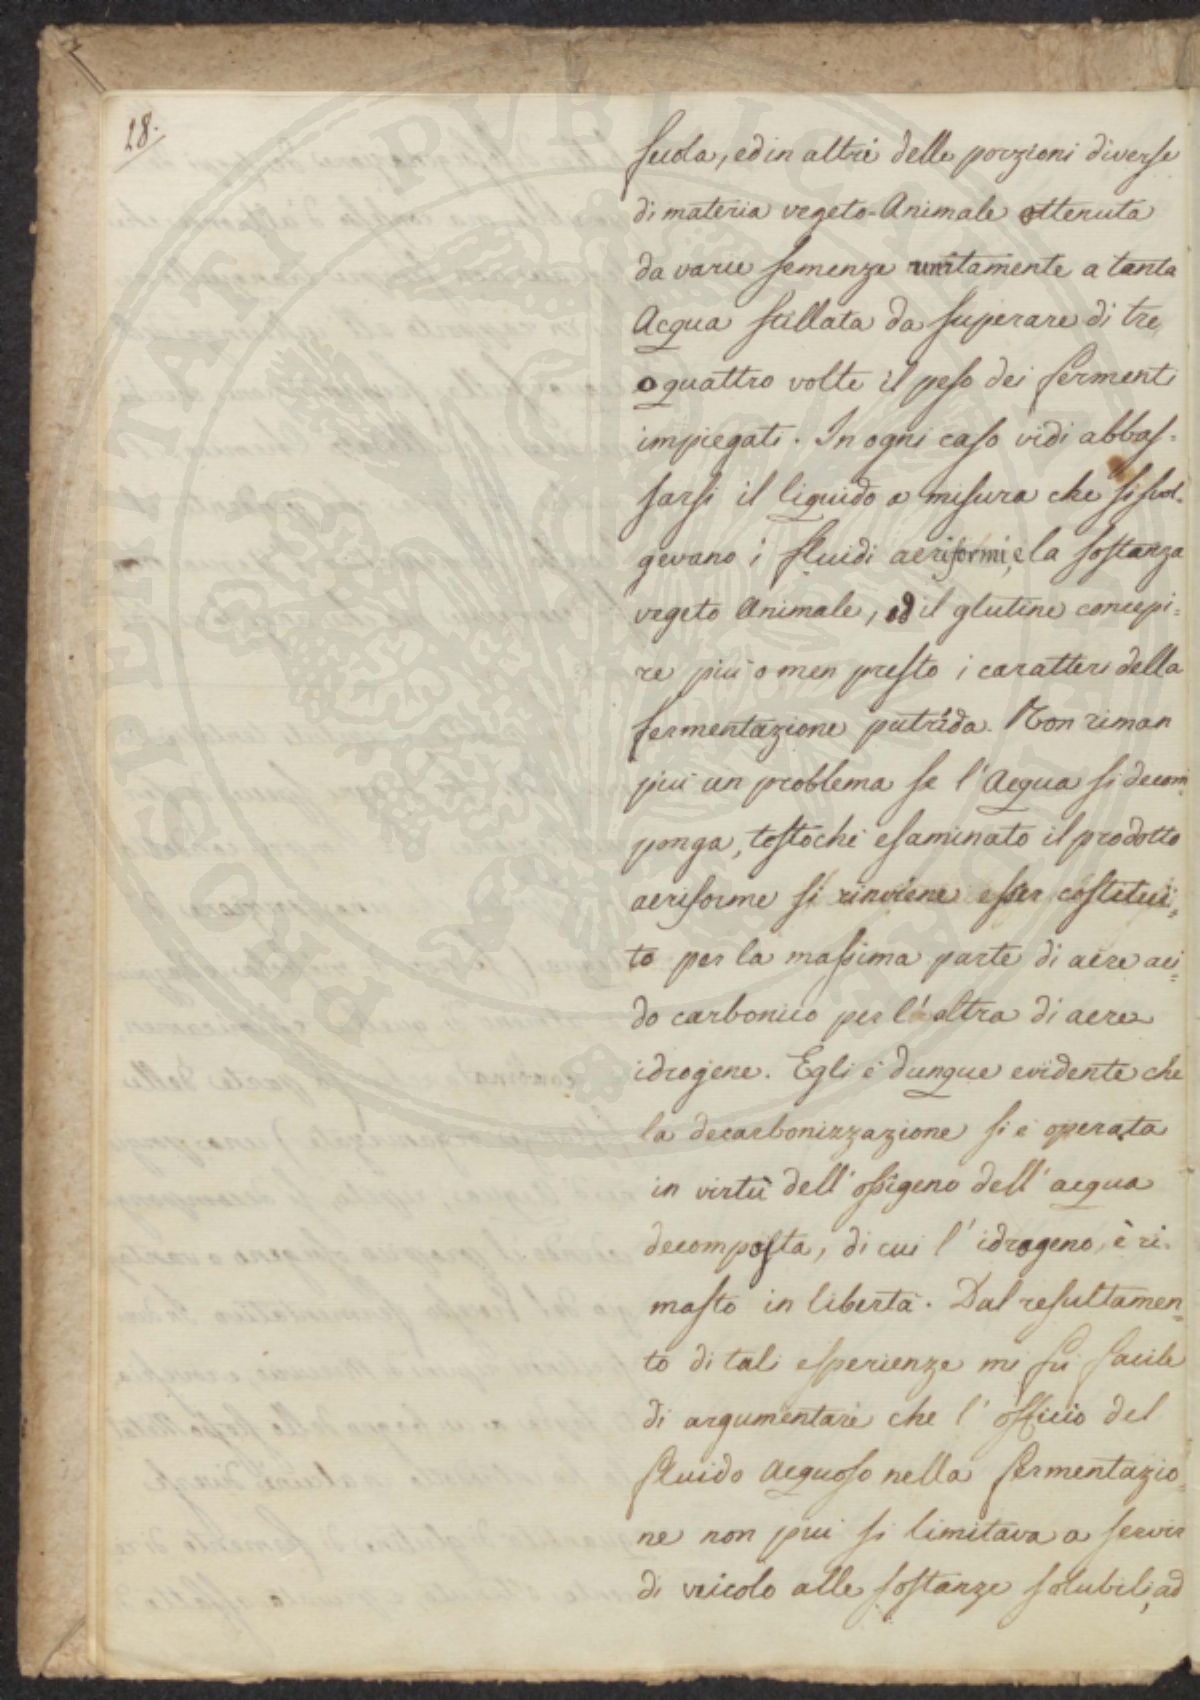 28.
fecola, ed in altri delle porzioni diverse
di materia vegeto-Animale ottenuta
da varie semenze unitamente a tanta
Acqua stillata da superare di tre,
o quattro volte il peso dei fermenti
impiegati. In ogni caso vidi abbas=
sarsi il liquido a misura che si svol=
gevano i fluidi aeriformi, e la sostanza
vegeto Animale, od il glutine concepi=
re più o men presto i caratteri della
fermentazione putrida. Non riman
più un problema se l'Acqua si decom=
ponga, tostochè esaminato il prodotto
aeriforme si rinviene esser costitui=
to per la massima parte di aere aci=
do carbonico per l'altra di aere
idrogene. Egli è dunque evidente che
la decarbonizzazione si è operata
in virtù dell'ossigeno dell'acqua
decomposta, di cui l'idrogeno, è ri=
masto in libertà. Dal resultamen=
to di tali esperienze mi fu facile
di argumentare che l'officio del
fluido Acquoso nella fermentazio=
ne non più si limitava a servir
di veicolo alle sostanze solubili, ad
PROSPERITATI PUBLICAE